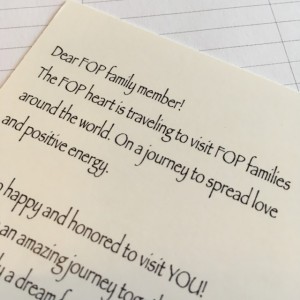 Dear FOP family member!
The FOP heart is traveling to visit FOP families
around the world. On a journey to spread love
and positive energy.
happy and honored to visit YOU!
an amazing journey
a dream